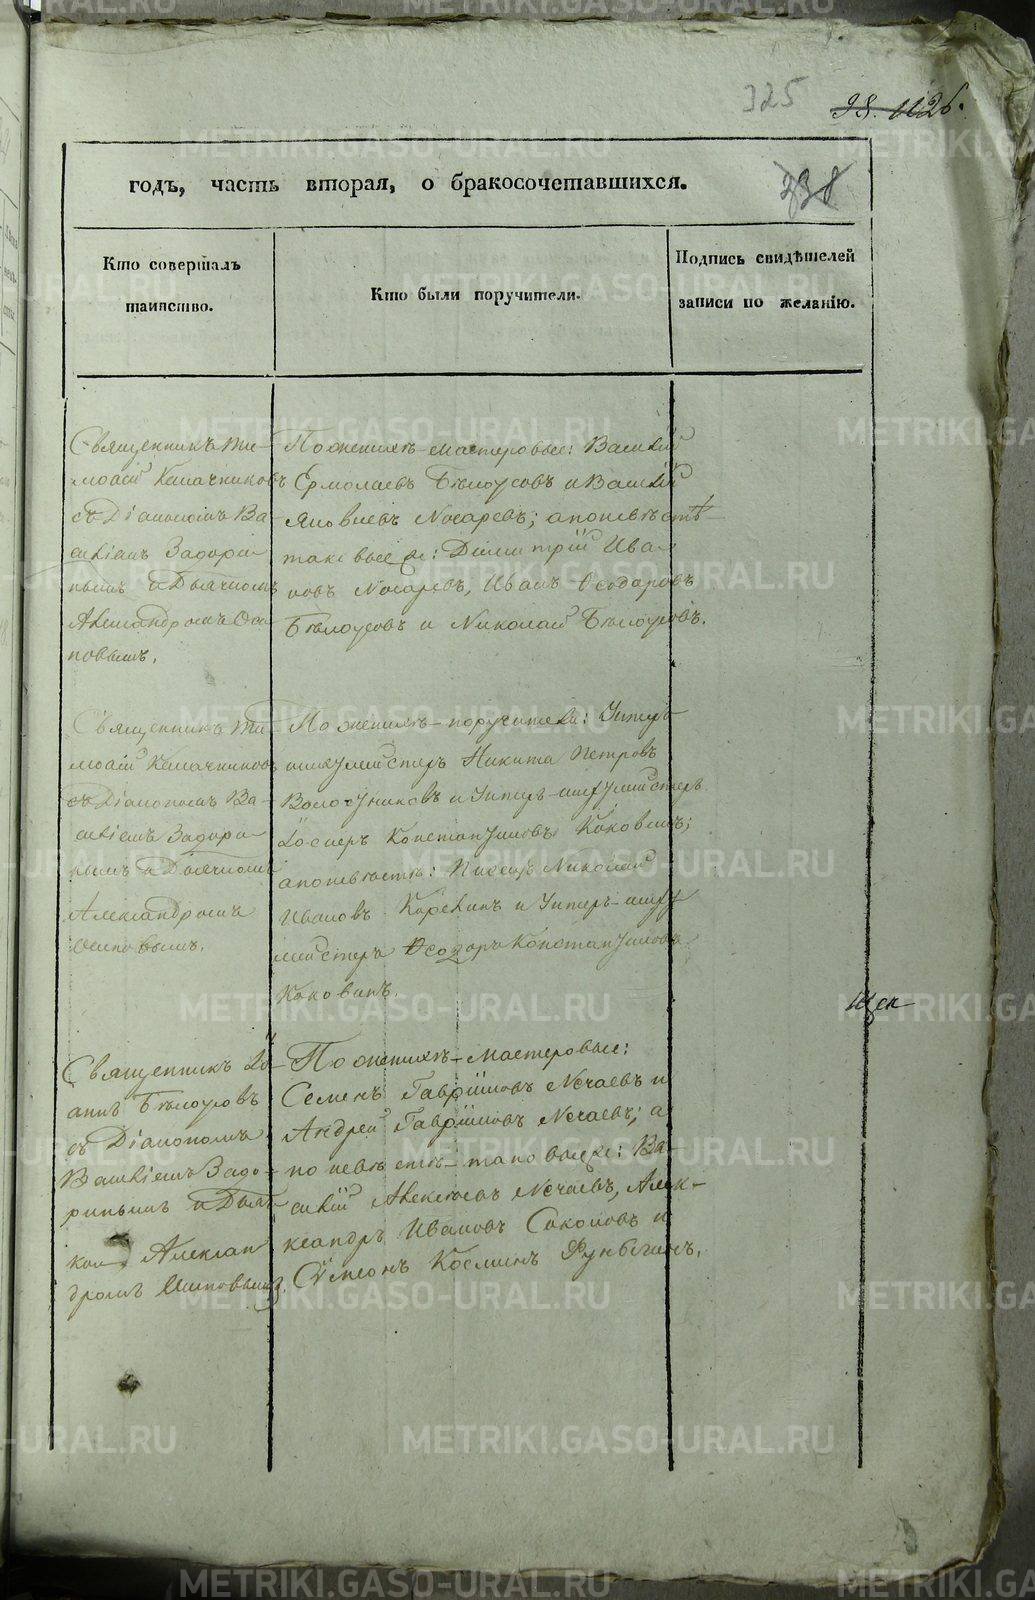 325
годъ, часть вторая, о бракосочетавшихся.
238
Кто совершалъ
таинство.
Кто были поручители.
Подпись свидѣтелей
записи по желанію.
Священникъ Ти-
моѳій Калачниковъ
съ Діакономъ Ва-
силіемъ Задори-
нымъ и Дьячкомъ
Александромъ Оси
повымъ.
По женихѣ мастеровые: Василій
Ермолаевъ Бѣлоусовъ и Василій
Яковлевъ Носаревъ; а по невѣстѣ
таковые же: Димитрій Ива-
новъ Носаревъ, Иванъ Ѳеодоровъ
Бѣлоусовъ и Николай Бѣлоусовъ.
Священникъ Ти
моѳій Калачниковъ
съ Діакономъ Ва-
силіемъ Задори-
нымъ и Дьячкомъ
Александромъ
Осиповымъ.
По женихѣ поручители: Унтеръ
шихтмейстеръ Никита Петровъ
и Унтеръ-шихтмейстеръ
Константиновъ Коковинъ;
а по невѣстѣ: Писецъ Николай
Ивановъ Карекинъ и Унтеръ-шихт
мейстеръ Ѳеодоръ Константиновъ
Коковинъ.
Священникъ Іо-
аннъ Бѣлоусовъ
съ Діакономъ
Василіемъ Задо-
ринымъ и Дьяч
комъ Алексан
дромъ Осиповымъ.
По женихѣ мастеровые:
Семенъ Гавріиловъ Нечаевъ и
Андрей Гавріиловъ Нечаевъ; а
по невѣстѣ таковые же: Ва-
силій Алексѣевъ Нечаевъ, Алек-
сандръ Ивановъ Соколовъ и
Сѵмеонъ Косминъ
METRIKI.GASO-URAL.RU